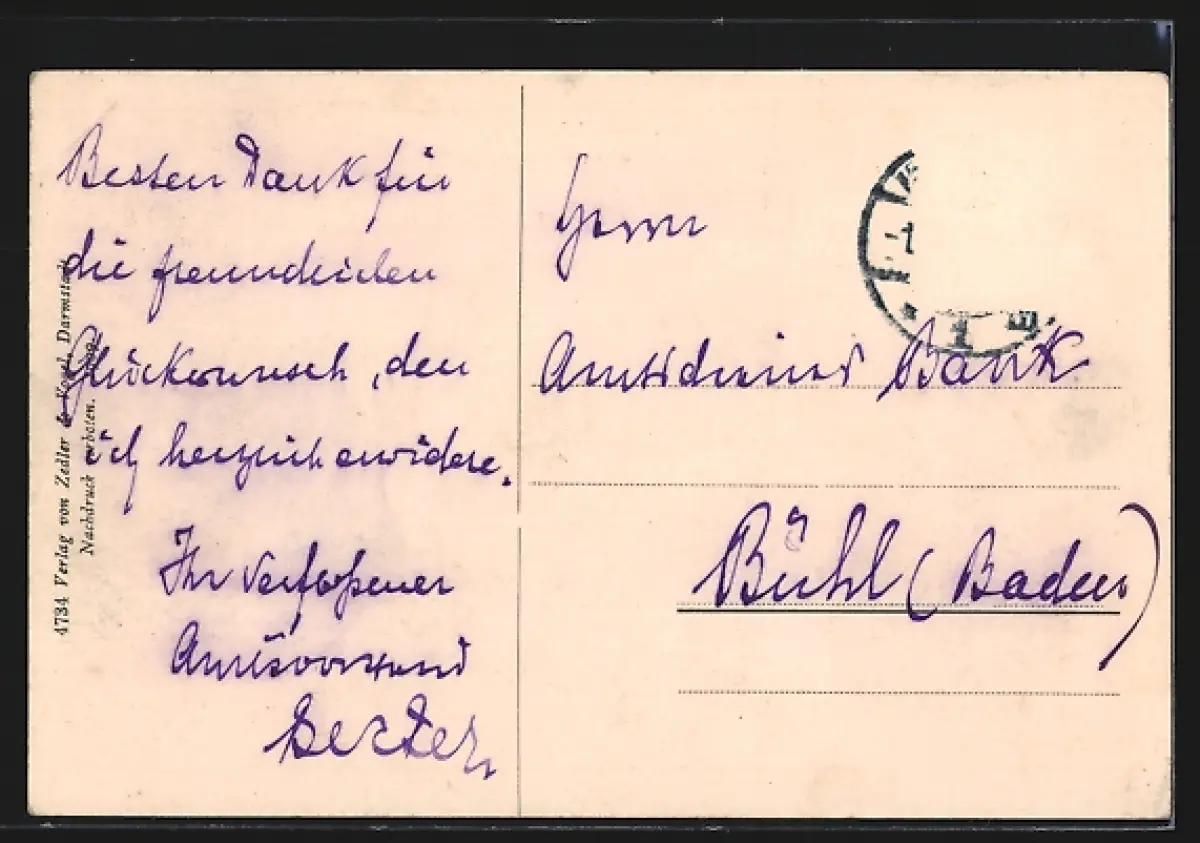 Besten Dank für
die freundlichen
Glückwunsch, den
ich herzlich erwidere.
Ihr
Amtsvorstand
Herrn
Amtsdiener Bank
Bühl (Baden)
4734 Verlag von Zedler & Vogel, Darmstadt.
Nachdruck verboten.
-1
1